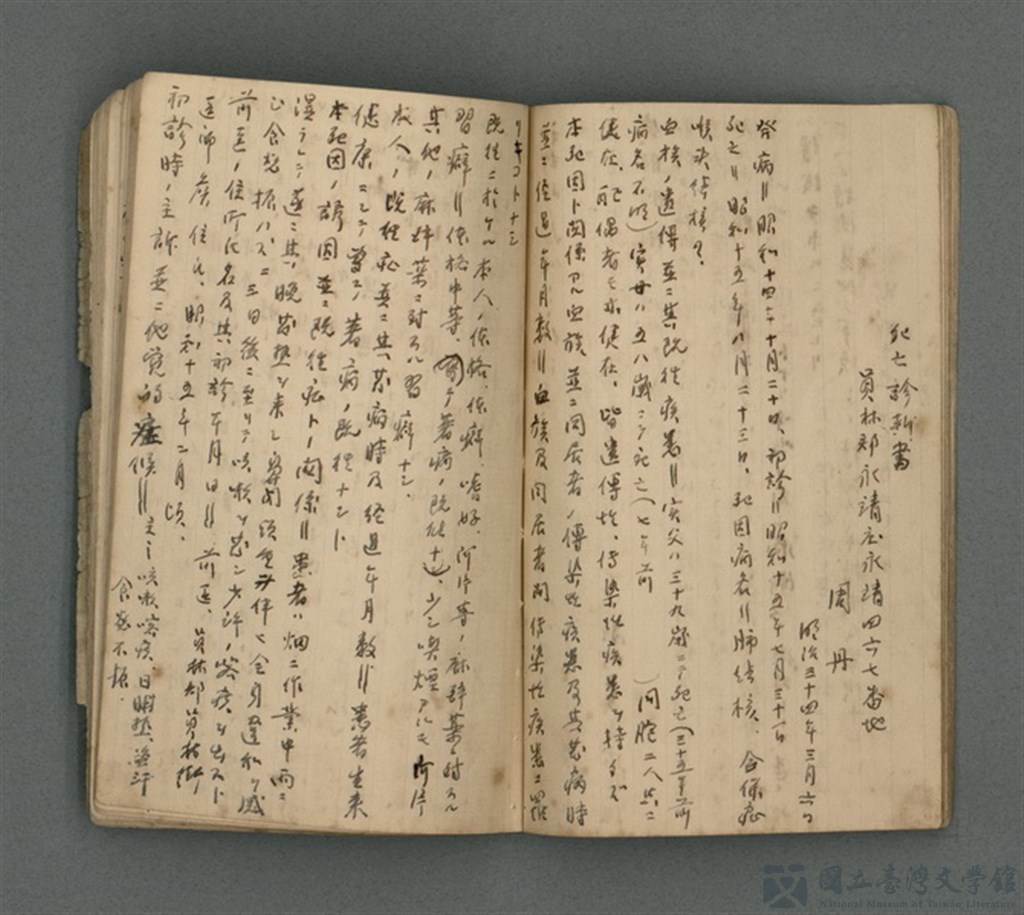 死亡診断書
員林郡永靖庄永靖四六七番地
周 丹
明治三十四年三月六日
発病‖昭和十四年十月二十日、初診‖昭和十五年七月三十一日
死亡‖昭和十五年八月二十三日、死因病名‖肺結核、合併症
喉頭結核？
血族ノ遺傳並ニ其ノ既往疾患‖実父ハ三十九歳ニテ死亡(三十五年前
病名不明)実母ハ五八歳ニテ死亡(七年前 )同胞二人共ニ
健在、配偶者モ亦健在、皆遺傳性、傳染性疾患ヲ持タズ
本死因ト関係アル血族並ニ同居者ノ傳染性疾患及其発病時
並ニ経過年月数‖血族及同居者間傳染性疾患ニ罹
リキコトナシ
既往ニ於ケル本人ノ体格、体癖、嗜好、阿片等ノ麻酔薬ニ対スル
習癖‖体格中等、著病ノ既往ナシ、少シ喫煙アルモ阿片
其他ノ麻酔薬ニ対スル習癖ナシ
本人ノ既往症並ニ其発病時及経過年月数‖患者生来
健康ニシテ曽テ著病ノ既往ナシト
本死因ノ誘因並ニ既往症トノ関係‖患者ハ畑ニ作業中雨ニ
湿ラシテ遂ニ其ノ晩発熱ヲ来シ頭重ヲ伴ヒ全身違和ヲ感
ジ食慾振ハズ二三日後ニ至リテ咳嗽ヲ発シ少許ノ喀痰ヲ出スト
前医ノ住所氏名及其初診年月日‖前医、員林郡員林街
医師 住氏、昭和十五年二月頃、
初診時ノ主訴並ニ他覚的症候‖主シ咳嗽喀痰、日晡熱、盗汗
食慾不振、
國立臺灣文學館
National Museum of Taiwan Literature